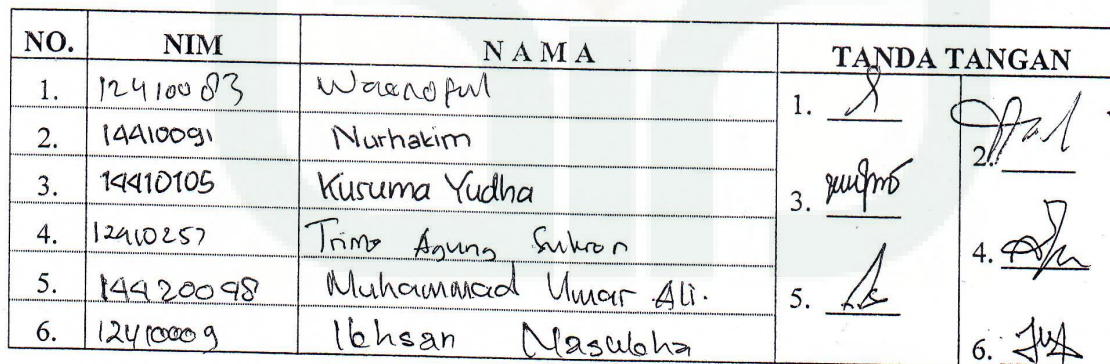 NO. NIM N A M A TANDA TANGAN
1. 12410083 1.
2. 14410091 Nurhakim 2.
3. 14410105 Kusuma Yudha 3.
4. 12410257 Trimo Agung Sukron 4.
5. 14420098 Muhammad Umar Ali. 5.
6. 12410009 Ikhsan 6.